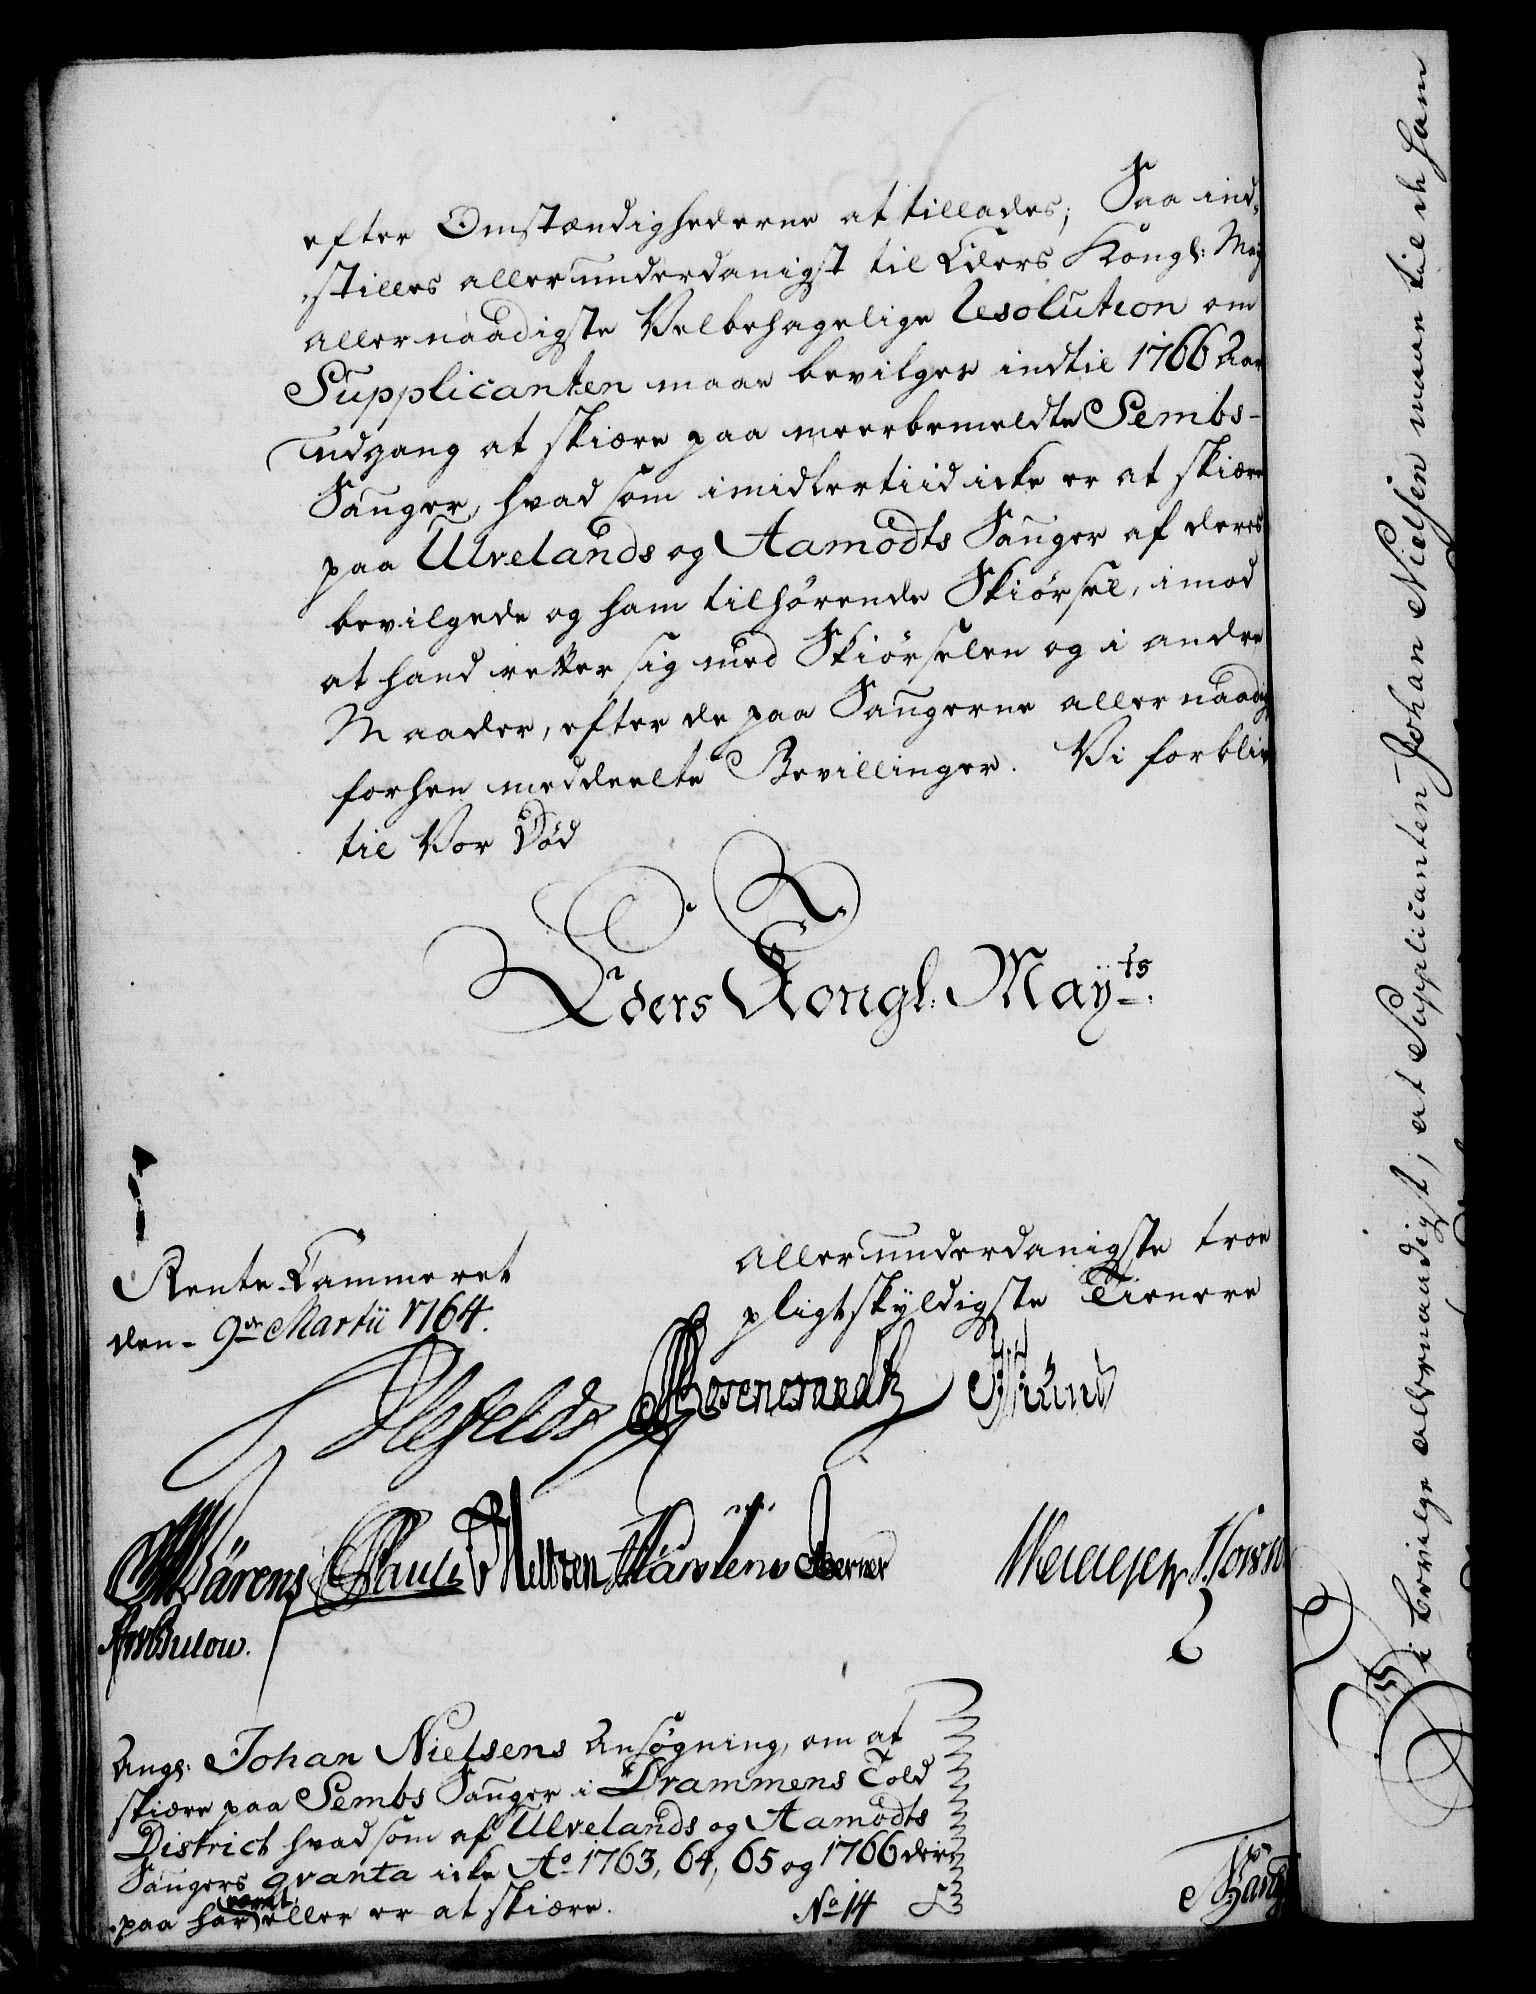 efter Omstændighederne at tillades; Saa ind-
stilles allerunderdanigst til Eders Kongl: May
allernaadigste Velbehagelige Resolution om
Supplicanten maae bevilges indtil 1766 Aars
Udgang at skiære paa meerbemeldte Sembs-
Sauger, hvad som imidlertiid icke er at skiære
paa Ulvelands og Aamodts Sauger af deres
bevilgede og ham tilhörende Skiörsel, imod
at hand retter sig med Skiörselen og i andre
Maader, efter de paa Saugerne allernaadigst
forhen meddeelte Bevillinger. Vi forbliver
til Vor Död
Eders Kongl: May^ts:
Rente-Cammeret
den 9de Martii 1764.
allerunderdanigste troe
pligtskyldigste Tienere
Ahlefeldt Rosencrandtz
Wärens Pauli Neltzen Karstens Berner
Bulow.
Ang: Johan Nielsens Ansögning, om at
skiære paa Sembs Sauger i Drammens Told
District hvad som af Ulvelands og Aamodts
Saugers qvanta icke Ao 1763, 64, 65 og 1766 der
paa har været eller er at skiære.
No 14
Vi bevilge allernaadigst, at Supplicanten Johan Nielsen maae til de ham